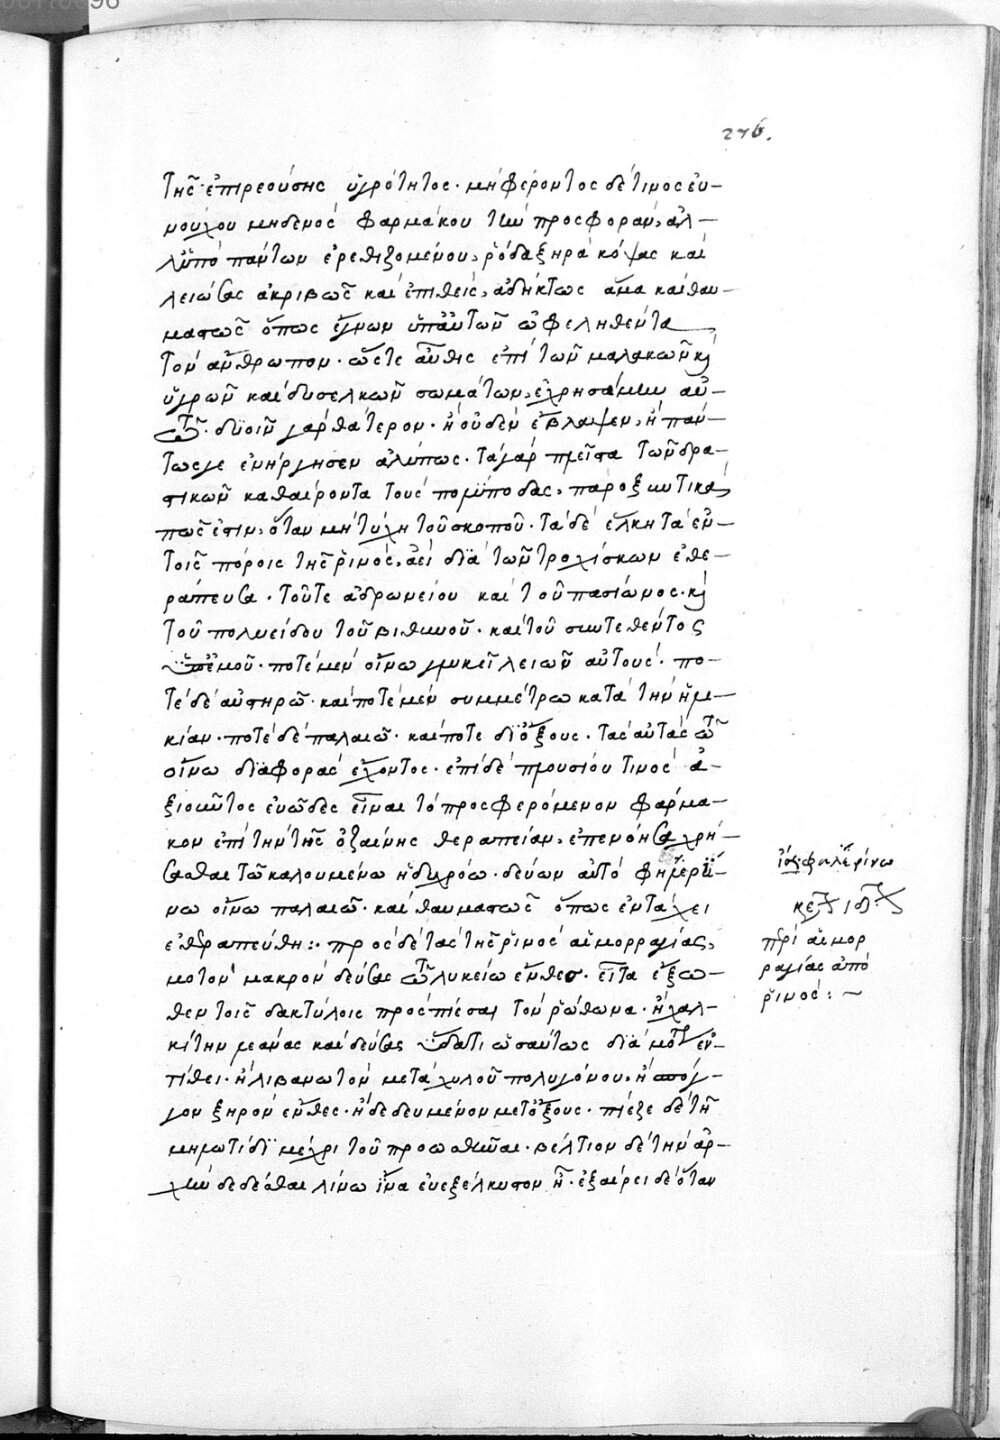 276.
τῆς ἐπιρεούσης ὑγρότητος· μὴ φέροντος δέ τινος εὐ-
νούχου μηδενὸς φαρμάκου τὴν προσφορὰν, ἀλ-
λ' ὑπὸ πάντων ἐρεθιζομένου, ῥόδα ξηρὰ κόψας καὶ
λειώσας ἀκριβῶς καὶ ἐπιθεὶς, ἀδήκτως ἅμα καὶ θαυ-
μαστῶς ὅπως ἔγνων ὑπ' αὐτῶν ὠφεληθέντα
τὸν ἄνθρωπον· ὥστε αὖθις ἐπὶ τῶν μαλακῶν κ
ὑγρῶν καὶ δυσελκῶν σωμάτων, ἐχρησάμην αὐ-
τῶ· δυοῖν γὰρ θάτερον· ἢ οὐδὲν ἔβλαψεν, ἢ πάν-
τως γε ἐνήργησεν ἀλύπως· τὰ γὰρ πλεῖστα τῶν δρα-
στικῶν καθαίροντα τοὺς πολύποδας, παροξυντικά
πως ἐστιν, ὅταν μὴ τύχη τοῦ σκοποῦ· τὰ δὲ ἕλκη τὰ ἐν
τοῖς πόροις τῆς ῥινὸς, ἀεὶ διὰ τῶν τροχίσκων ἐθε-
ράπευσα· τοῦτε ἀδρωνείου καὶ τοῦ πασίωνος· κ
τοῦ πολυείδου τοῦ βιθυνοῦ· καὶ τοῦ συντεθέντος
ὑπ' ἐμοῦ· ποτὲ μὲν οἴνω γλυκεῖ λειῶν αὐτοὺς· πο-
τὲ δὲ αὐστηρῶ· καὶ ποτὲ μὲν συμμέτρω κατὰ τὴν ἡλι-
κίαν· ποτὲ δὲ παλαιῶ· καὶ ποτε δι' ὄξους· τὰς αὐτὰς τῶ
οἴνω διαφορὰς ἔχοντος· ἐπὶ δὲ πλουσίου τινὸς ἀ-
ξιοῦντος εὐῶδες εἶναι τὸ προσφερόμενον φάρμα-
κον ἐπὶ τὴν τῆς ὀζαίνης θεραπείαν, ἐπενόησα χρή-
σασθαι τῶ καλουμένω ἡδυχρόω· δεύων αὐτὸ φαλερί-
νω οἴνω παλαιῶ· καὶ θαυμαστῶς ὅπως ἐν τάχει
ἐθεραπεύθη:· πρὸς δὲ τὰς τῆς ῥινὸς αἱμορραγίας,
μοτὸν μακρὸν δεύσας τῶ λυκείω ἔνθες· εἶτα ἔξω-
θεν τοῖς δακτύλοις προσπίεσαι τὸν ῥώθωνα· ἢ χαλ-
κίτην λεάνας καὶ δεύσας ὕδατι ὡσαύτως διὰ μοτοῦ ἐν-
τίθει· ἢ λιβανωτὸν μετὰ χυλοῦ πολυγόνου, ἢ σπόγ-
γον ξηρὸν ἔνθες· ἢ δεδευμένον μετ' ὄξους· πίεζε δὲ τῆ
μηλωτίδι μέχρι τοῦ προσωσθῆναι· βέλτιον δὲ τὴν ἀρ-
χὴν δεδέσθαι λίνω ἵνα εὐεξέλκυστον ἦ· ἐξαίρει δὲ ὅταν
ἴσ φαλερίνω
περὶ αἱμορ
ραγίας ἀπὸ
ῥινός:~